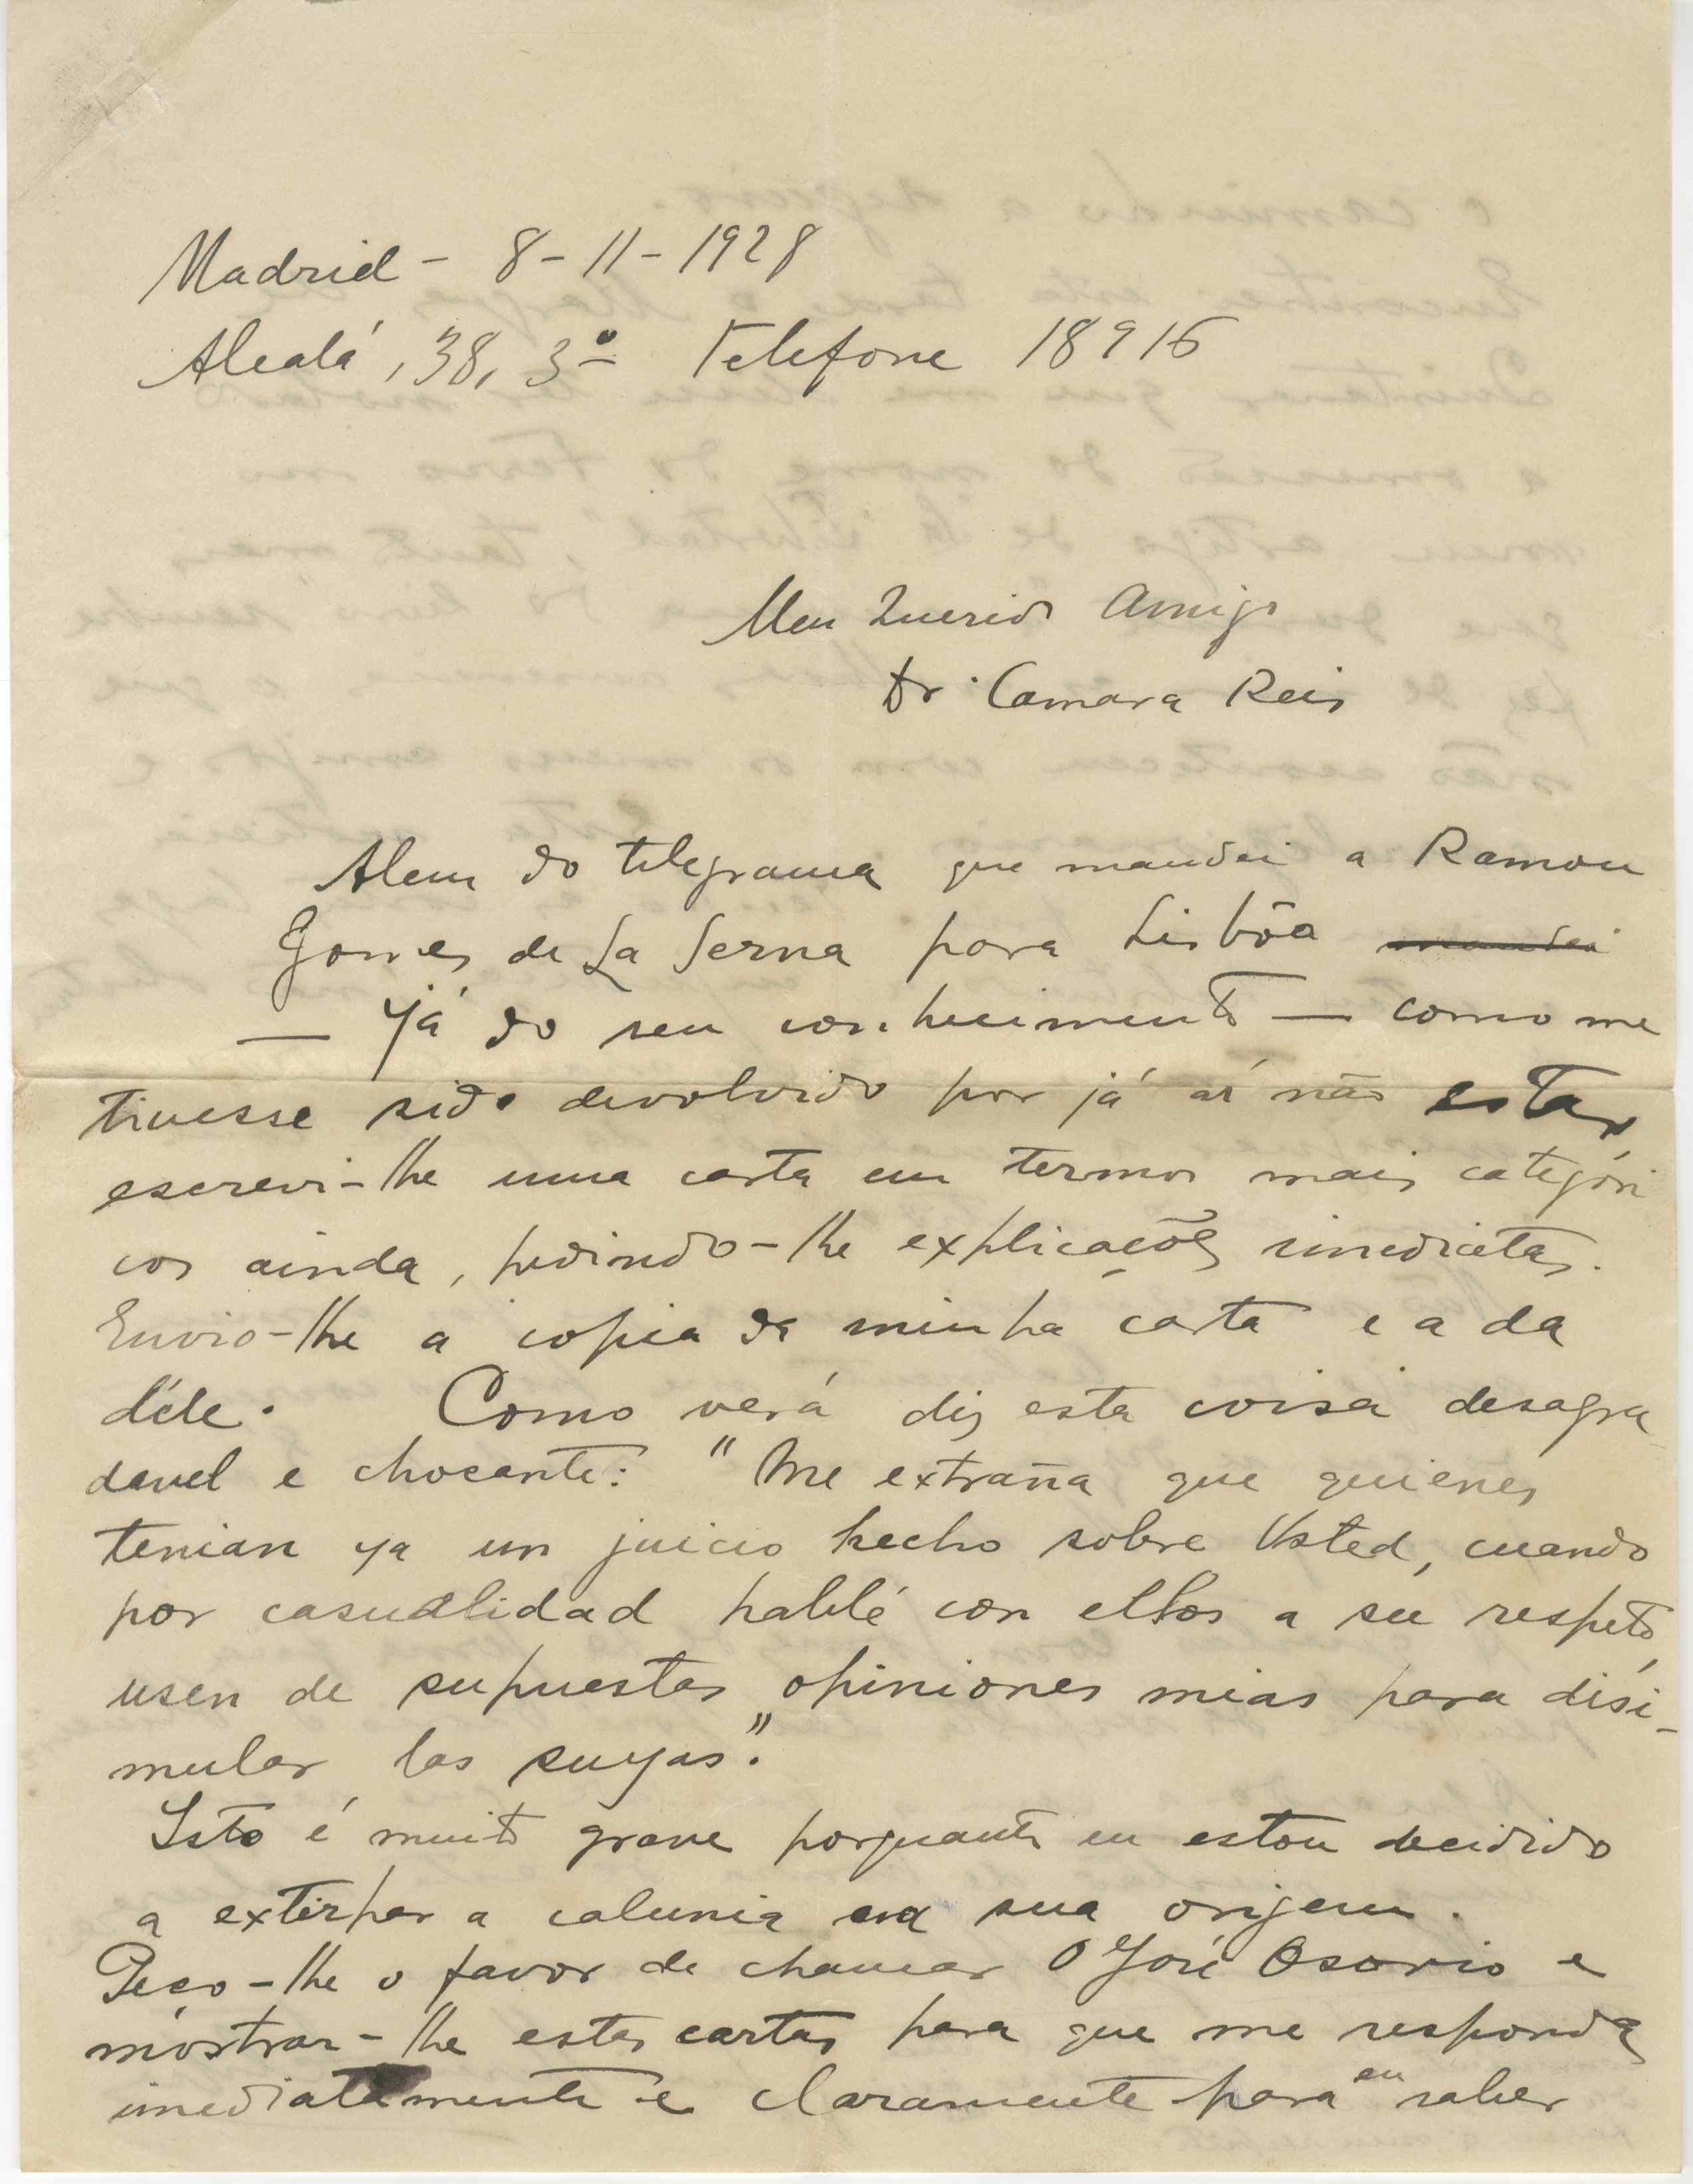 Madrid - 8-11-1928
Alcalá, 38, 3º Telefone 18916
Meu Querido Amigo
Dr. Camara Reis
Alem do telegrama que mandei a Ramon
Gomes de La Serna para Lisbôa mandei
— já do seu conhecimento — como me
tivesse sido devolvido por já aí não estar
escrevi-lhe uma carta em termos mais categóri
cos ainda, pedindo-lhe explicações imediatas.
Envio-lhe a copia da minha carta e a da
dêle. Como verá diz esta coisa desagra
davel e chocante: "Me extraña que quienes
tenian ya un juicio hecho sobre Usted, cuando
por casualidad hablé con ellos a su respeto,
usen de supuestas opiniones mias para disi-
mular las suyas."
Isto é muito grave porquanto eu estou decidido
a extirpar a calunia na sua origem.
Peço-lhe o favor de chamar o José Osorio e
mostrar-lhe estas cartas para que me responda
imediatamente e claramente para eu saber